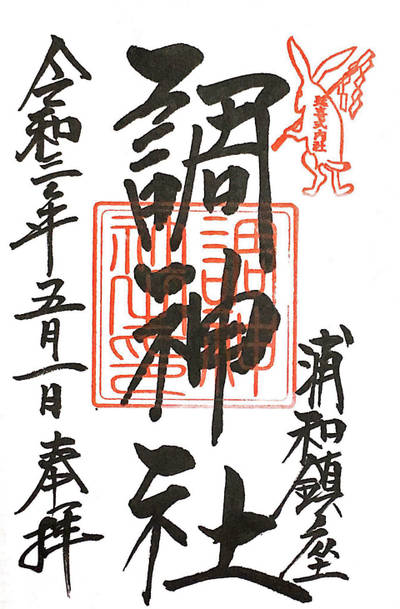 延喜式内社
浦和鎮座
調神社
調神社之印
令和三年五月一日奉拝